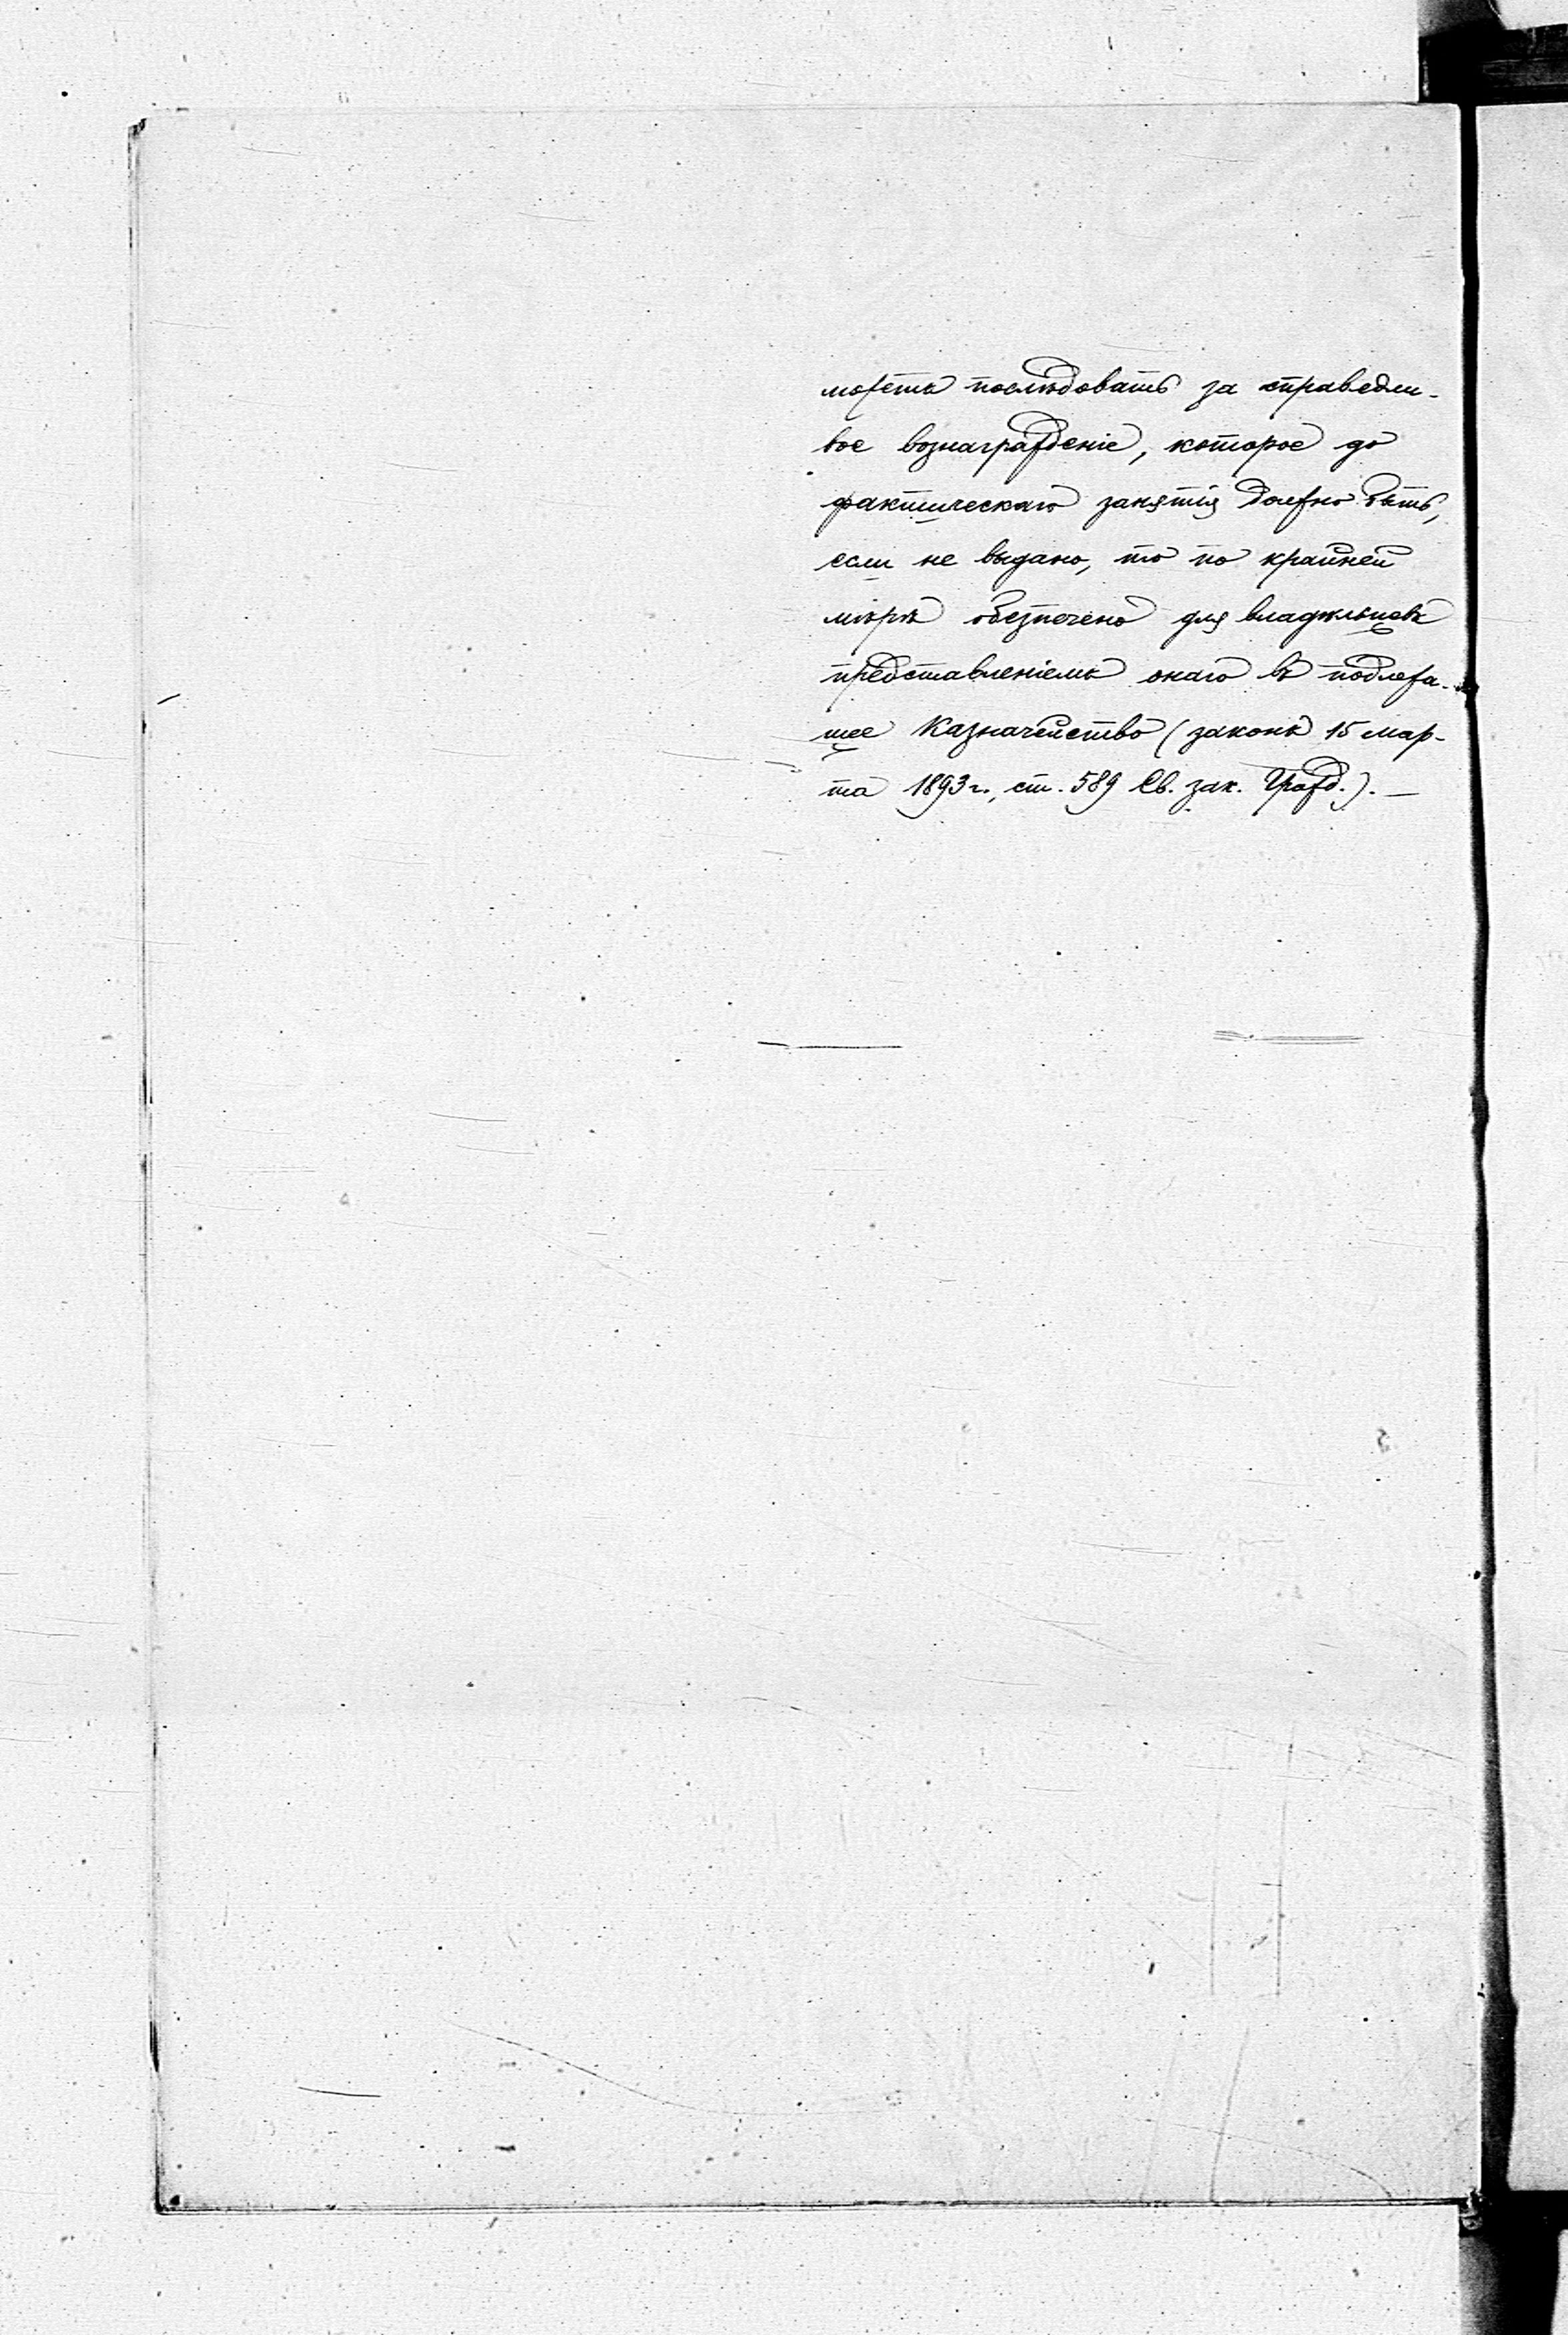 можетъ послѣдовать за справедли-
вое вознагражденіе, которое до
фактическаго занятія должно быть,
если не выдано, то по крайней
мѣрѣ обезпечено для владѣльцевъ
представленіемъ онаго въ подлежа-
щее Казначейство (законъ 15 мар-
та 1893 г., ст. 589 Св. зак. Гражд.). —